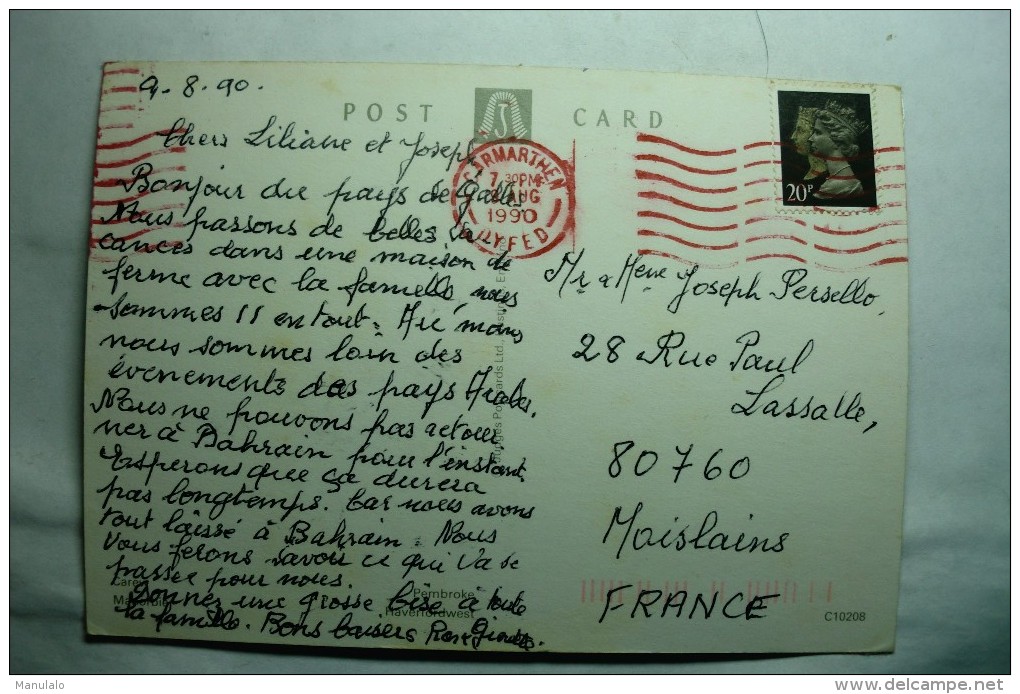 9-8-90.
POST CARD
Chers Liliane et Joseph
Bonjour du pays de Galles
Nous passons de belles va
cances dans une maison de
ferme avec la famille, nous
sommes 11 en tout =
nous sommes loin des
évenements des pays Arabes.
Nous ne pouvons pas retour
ner à Bahrain pour l'instant
Esperons que ça durera
pas longtemps. Car nous avons
tout laissé à Bahrain = Nous
vous ferons savoir ce qui va se
passer pour nous.
Donnez une grosse bise à toute
la famille. Bons baisers Rose
CARMARTHEN
7.30PM
AUG
1990
DYFED
20P
Mr & Mme Joseph Persello
28 Rue Paul
Lassalle,
80760
Moislains
FRANCE
Pembroke
Haverfordwest
C10208
Manulalo
delcampe.net